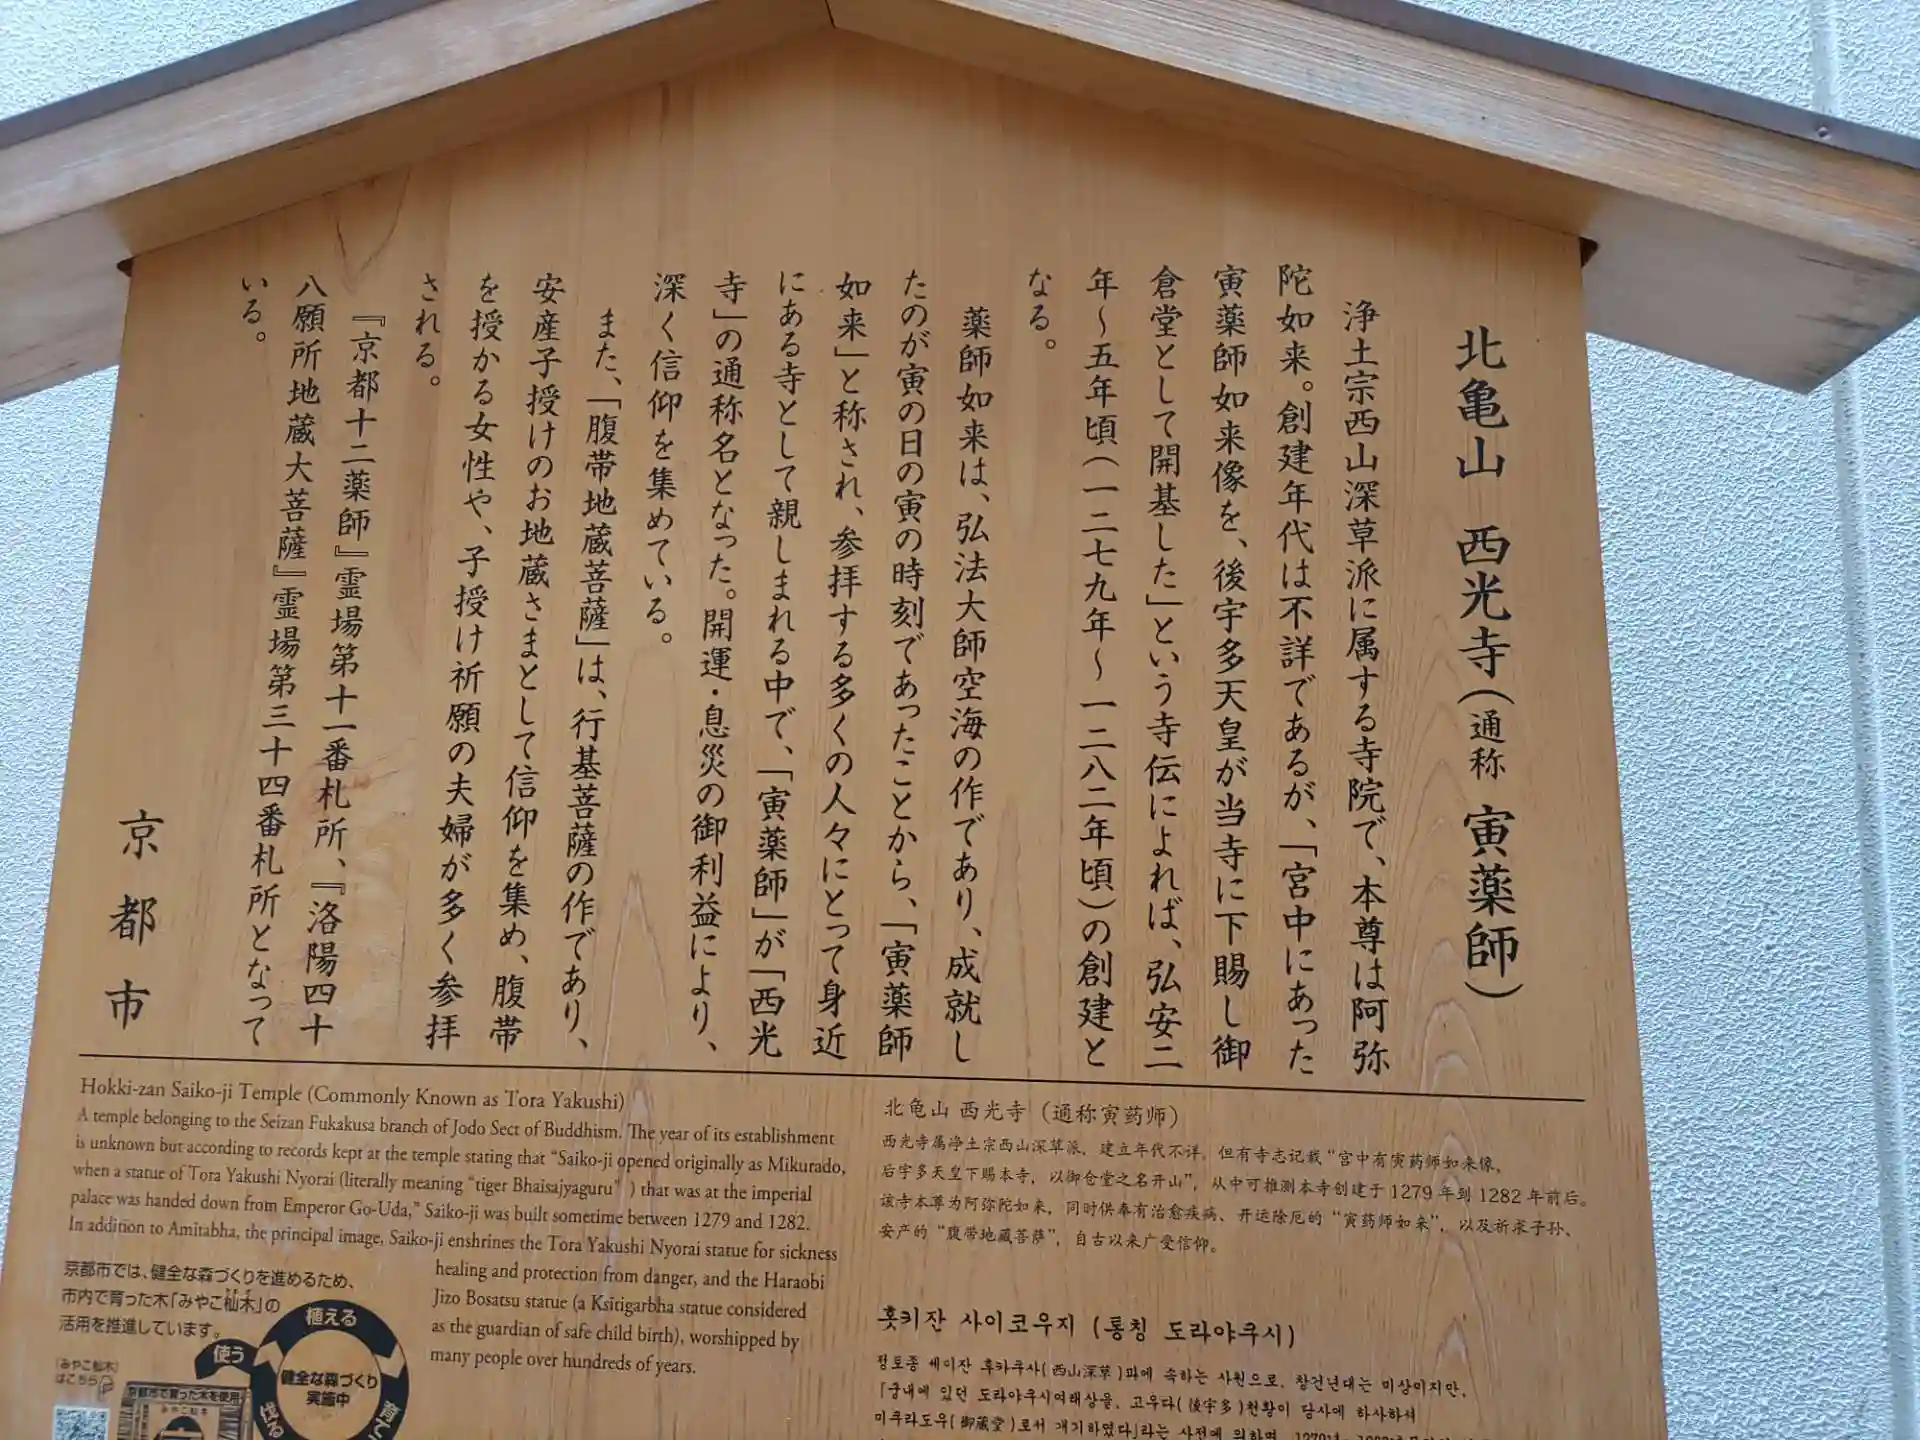 北亀山 西光寺（通称 寅薬師）
浄土宗西山深草派に属する寺院で、本尊は阿弥
陀如来。創建年代は不詳であるが、「宮中にあった
寅薬師如来像を、後宇多天皇が当寺に下賜し御
倉堂として開基した」という寺伝によれば、弘安二
年～五年頃（一二七九年～一二八二年頃）の創建と
なる。
薬師如来は、弘法大師空海の作であり、成就し
たのが寅の日の寅の時刻であったことから、「寅薬師
如来」と称され、参拝する多くの人々にとって身近
にある寺として親しまれる中で、「寅薬師」が「西光
寺」の通称名となった。開運・息災の御利益により、
深く信仰を集めている。
また、「腹帯地蔵菩薩」は、行基菩薩の作であり、
安産子授けのお地蔵さまとして信仰を集め、腹帯
を授かる女性や、子授け祈願の夫婦が多く参拝
される。
『京都十二薬師』霊場第十一番札所、『洛陽四十
八願所地蔵大菩薩』霊場第三十四番札所となって
いる。
京都市
Hokki-zan Saiko-ji Temple (Commonly Known as Tora Yakushi)
A temple belonging to the Seizan Fukakusa branch of Jodo Sect of Buddhism. The year of its establishment
is unknown but according to records kept at the temple stating that “Saiko-ji opened originally as Mikurado,
when a statue of Tora Yakushi Nyorai (literally meaning “tiger Bhaisajyaguru” ) that was at the imperial
palace was handed down from Emperor Go-Uda,” Saiko-ji was built sometime between 1279 and 1282.
In addition to Amitabha, the principal image, Saiko-ji enshrines the Tora Yakushi Nyorai statue for sickness
healing and protection from danger, and the Haraobi
Jizo Bosatsu statue (a Ksitigarbha statue considered
as the guardian of safe child birth), worshipped by
many people over hundreds of years.
京都市では、健全な森づくりを進めるため、
市内で育った木「みやこ杣木」の
活用を推進しています。
みやこ杣木
はこちら
植える
使う
健全な森づくり
実施中
京都市で育った木を使用
みやこ杣木
北龟山 西光寺（通称寅药师）
西光寺属净土宗西山深草派，建立年代不详。但有寺志记载“宫中有寅药师如来像，
后宇多天皇下赐本寺，以御仓堂之名开山”，从中可推测本寺创建于1279年到1282年前后。
该寺本尊为阿弥陀如来，同时供奉有治愈疾病、开运除厄的“寅药师如来”，以及祈求子孙、
安产的“腹带地藏菩萨”，自古以来广受信仰。
홋키잔 사이코우지 (통칭 도라야쿠시)
정토종 세이잔 후카쿠사(西山深草)파에 속하는 사원으로, 창건년대는 미상이지만,
「궁내에 있던 도라야쿠시여래상을, 고우다(後宇多)천황이 당사에 하사하셔
미쿠라도우(御蔵堂)로서 개기하였다」라는 사전에 의하면,